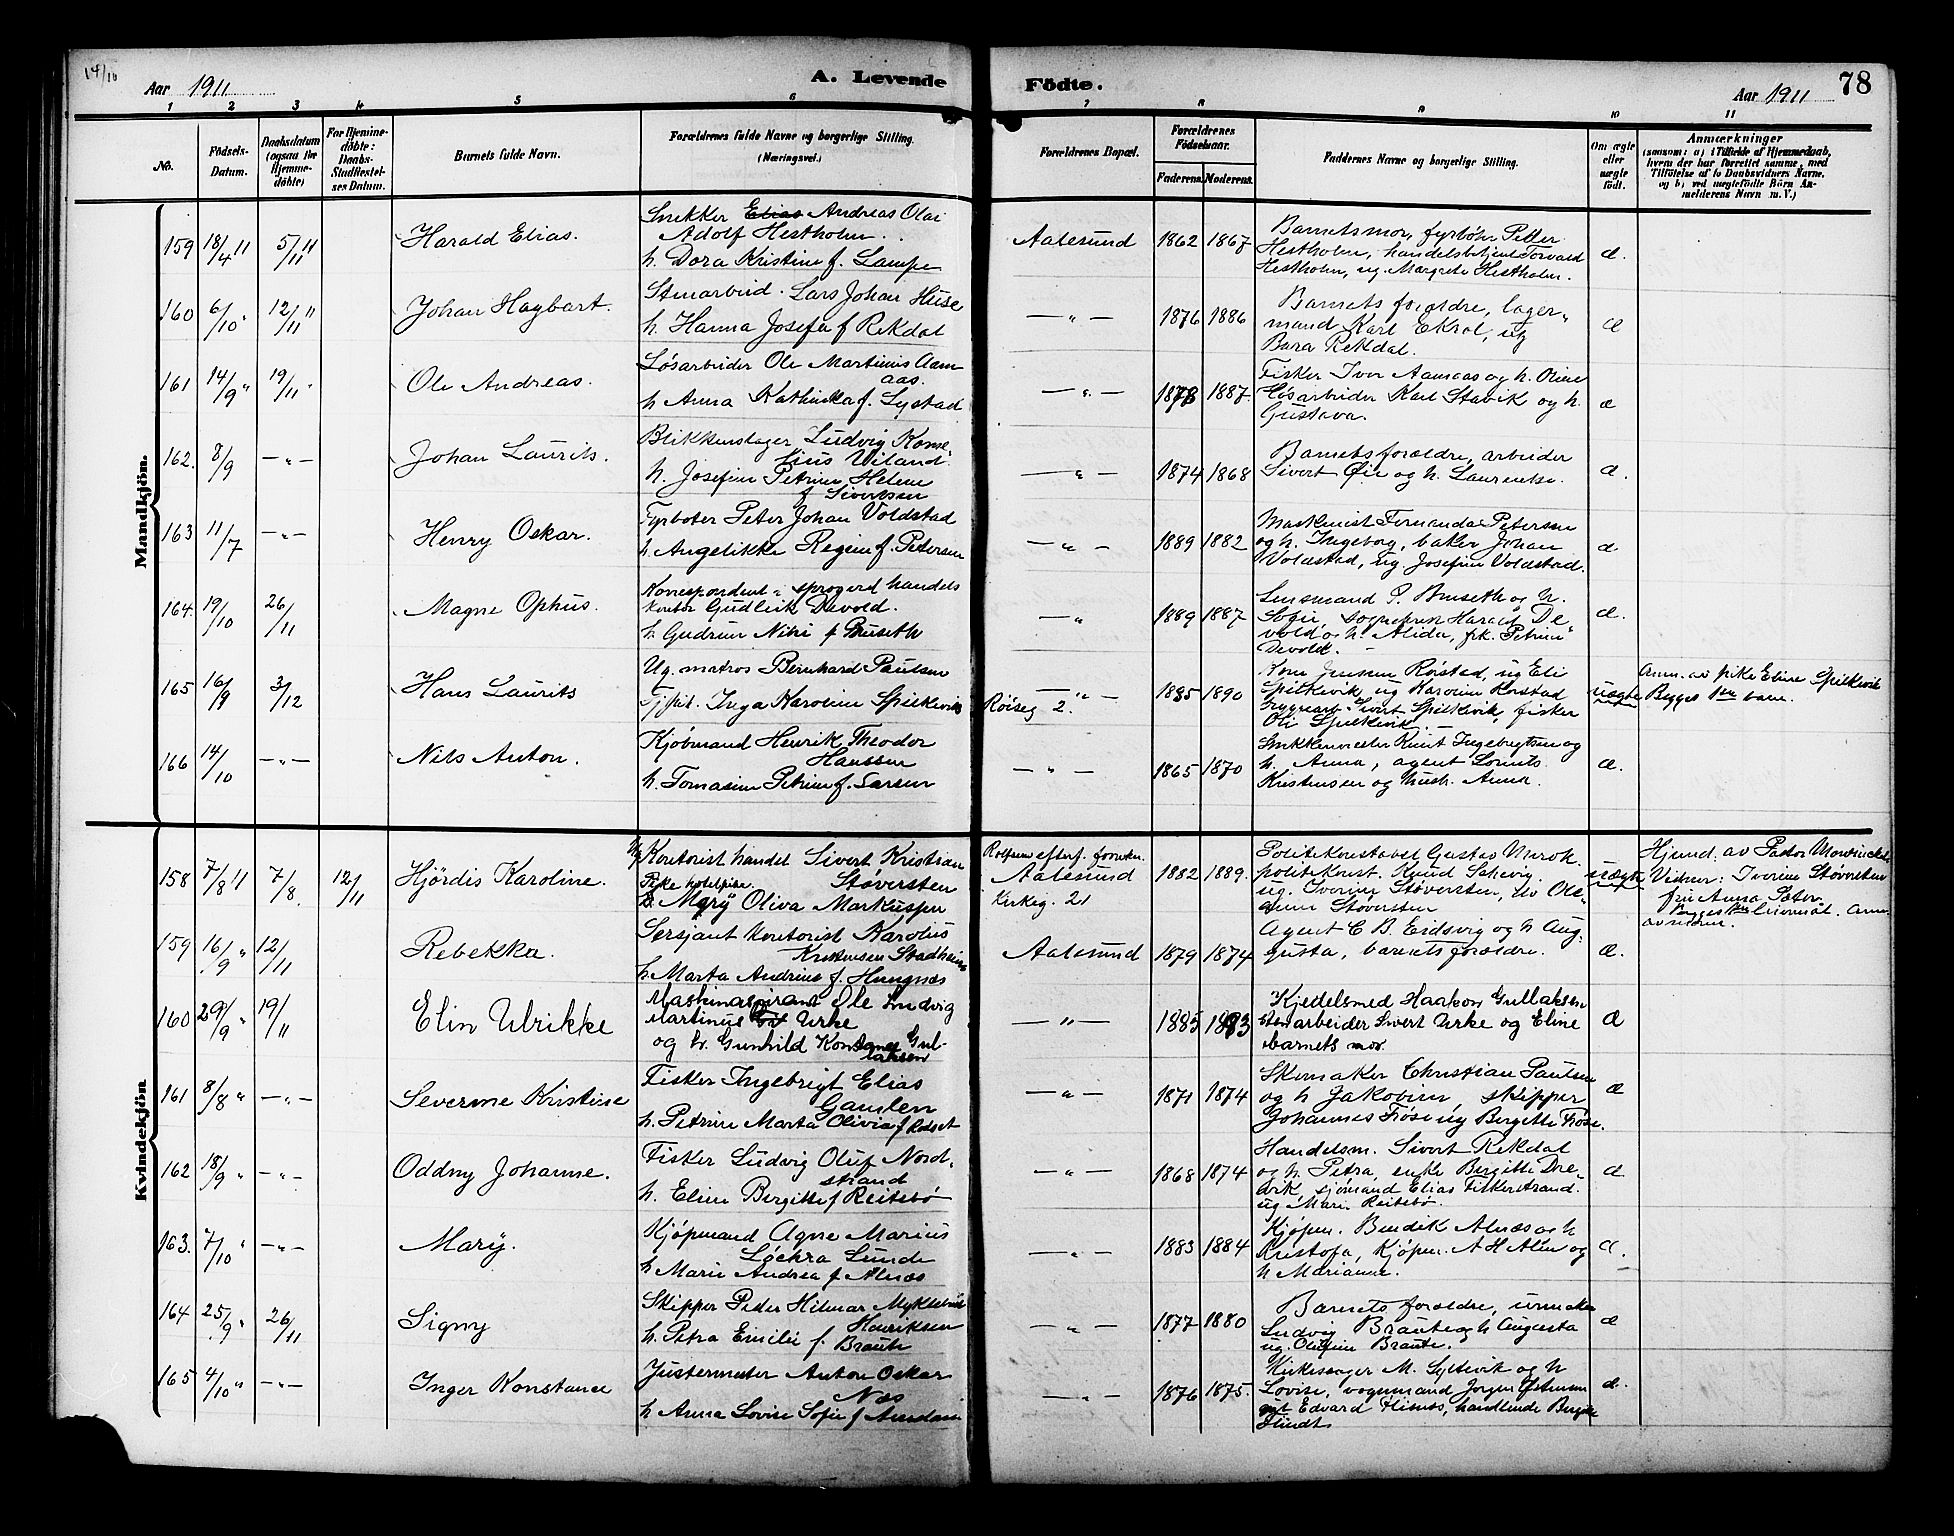 14/10
Aar 1911
A. Levende
Födte.
Aar 1911
78
1 2 3 4 5 6 7 8 9 10 11
No.
Födsels-Datum.
Daabsdatum (ogsaa for Hjemme-döbte)
For Hjemme-döbte: Daabs-Stadfæstel-ses Datum.
Barnets fulde Navn.
Forældrenes fulde Navne og borgerlige Stilling.
(Næringsvei.)
Forældrenes Bopæl.
Forældrenes Födselsaar.
Faderens. Moderens.
Faddernes Navne og borgerlige Stilling.
Om ægte eller uægte födt.
Anmærkninger
(saasom: a) i Tilfælde af Hjemmedaab,
hvem der har forrettet samme, med
Tilföielse af to Daabsvidners Navne,
og b) ved uægtefödte Börn An-
melderens Navn m. V.)
Mandkjön.
159 18/4 11 5/11 11
Harald Elias.
Snekker Elias Andreas Olai
Adolf Hestholm.
h. Dora Kristine f. Lampe
Aalesund 1862 1867
Barnets mor, fyrbøter Petter
Hestholm, handelsbetjent Torvald
Hestholm, ug. Margrete Hestholm.
æ.
160 6/10 " 12/11 "
Johan Hagbart.
Stenarbeid. Lars Johan Huse
h. Hanna Josefa f Rekdal
— " — 1876 1886
Barnets forældre, lager-
mand Karl Ekrol, ug
Bara Rekdal.
æ
161 14/9 " 19/11 "
Ole Andreas.
Løsarbeider Ole Martinius Aam
aas.
h Anna Kathinka f. Systad
— " — 1878 1887.
Fisker Iver Aamaas og h. Oline
Løsarbeider Karl Stavik og h.
Gustava.
æ
162. 8/9 — " —
Johan Laurits.
Blikkenslager Ludvig Korne-
lius Viland.
h. Josefine Petrine Helene
f Sivertsen
— " — 1874 1868
Barnets forældre, arbeider
Sivert Øie og h. Laurentse.
æ.
163 11/7 — " —
Henry Oskar.
Fyrbøter Peter Johan Voldstad
h. Angelikke Regine f. Petersen
— " — 1889 1882
Maskinist Fernanda Petersen
og h. Ingeborg, baker Johan
Voldstad, ug. Josefine Voldstad.
æ
164. 19/10 26/11
Magne Ophus.
Korrespondent i sprogerd handels
kontor Gudleik Devold.
h. Gudrun Niki f Bruseth
— " 1889 1887
Lensmand P. Bruseth og h.
Sofie, sogneprest Harald De
vold og h. Alida, frk. Petrine
Devold.
æ.
165 16/9 3/12
Hans Laurits
Ug. matros Bernhard Paulsen
Tjpik. Inga Karoline Spilkevik
— " —
Röiseg 2. 1885 1890
Spilkevik, ug Karoline Rørstad
Sivert Spilkevik, fisker
Oli Spilkevik
uægte
Anm. av pike Eline Spilkevik
Begges 1ste barn.
166 14/10 — " —
Nils Anton.
Kjøbmand Henrik Theodor
Hanssen
h. Tomasine Petrine f. Larsen
— " — 1865 1870
Snekkermester Knut Ingebrigtsen og
h. Anna, agent Lorents
Kristensen og hust. Anna.
æ.
Kvindekjön
158 7/8 11 7/8. 12/11
Hjördis Karoline.
Ug Kontorist handel Sivert Kristian
Støversten
Pike hotelpike.
Mary Oliva Markussen
Rolfsens efterf. forretn.
Aalesund
Kirkeg. 21 1882 1889.
Politikonstabel Gustav Mirok.
politikonst. Knud Sakevig.
ug. Iverine Støversten, elev Ole-
anna Støversten
uægte
Hjemd. av Pastor Mowinckel
Vidner: Iverine Støversten
frk Anna Sæter.
Begges 1ste leiermål. Anm.
av moren.
159 16/9 " 12/11
Rebekka.
Sersjant kontorist Karolus
Kristensen Stadheim
h Marta Andrine f. Hungnes
Aalesund 1879 1874
Agent C B. Eidsvig og h Aug-
gusta, barnets forældre.
æ.
160 29/9 " 19/11
Elin Ulrikke
Maskinaspirant Ole Ludvig
Martinus Urke
og h. Gunhild Konstanse Gul-
laksen
— " — 1885 1883
Kjedelsmed Haakon Gullaksen
sten arbeider Sivert Urke og Eline
barnets mor.
æ
161 8/8 " — " —
Severine Kristine
Fisker Ingebrigt Elias
Gamlen
h. Petrine Marta Olivia f Rodset
— " — 1871 1874
Skomaker Christian Paulsen
og h Jakobine, skipper
Johannes Frøse ug Bergitte Frøse.
æ
162 18/9 " — " —
Oddny Johanne.
Fisker Ludvig Oluf Nord-
strand
h. Eline Bergitte f Reitebø
— " — 1868 1874
Handelsm. Sivert Rekdal
og h. Petra, enke Bergitte Dre-
vik, sjømand Elias Fiskerstrand.
ug Marie Reitebø.
æ
163. 7/10 " — " —
Marÿ.
Kjøpmand Agne Marius
Løchra Lunde
h Marie Andrea f Alnæs
— " — 1883 1884
Kjøpm. Bendik Alnæs og h
Kristofa, Kjøpm. A H Alen og
h Marianne.
æ.
164 25/9 " 26/11
Signy
Skipper Peder Hilmar Myklebust
Henriksen
h. Petra Emilie f. Braute
— " — 1877 1880
Barnets forældre, urmaker
Ludvig Braute og h Augusta
ug. Olufine Braute.
æ
165 4/10 " — " —
Inger Konstance
Justermester Anton Oskar
Næs
h Anna Lovise Sofie f Amdam
— " — 1876 1875.
Kirkesager M. Syltevik og h
Lovise, vognmand Jørgen Østensen
Edvard Flisnes, handlende Bergitte
Flindt
æ.